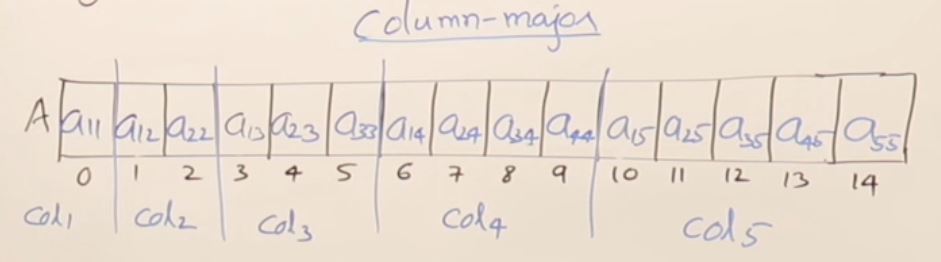 Column-major
A a11 a12 a22 a13 a23 a33 a14 a24 a34 a44 a15 a25 a35 a45 a55
0 1 2 3 4 5 6 7 8 9 10 11 12 13 14
Col1 Col2 Col3 Col4 Col5